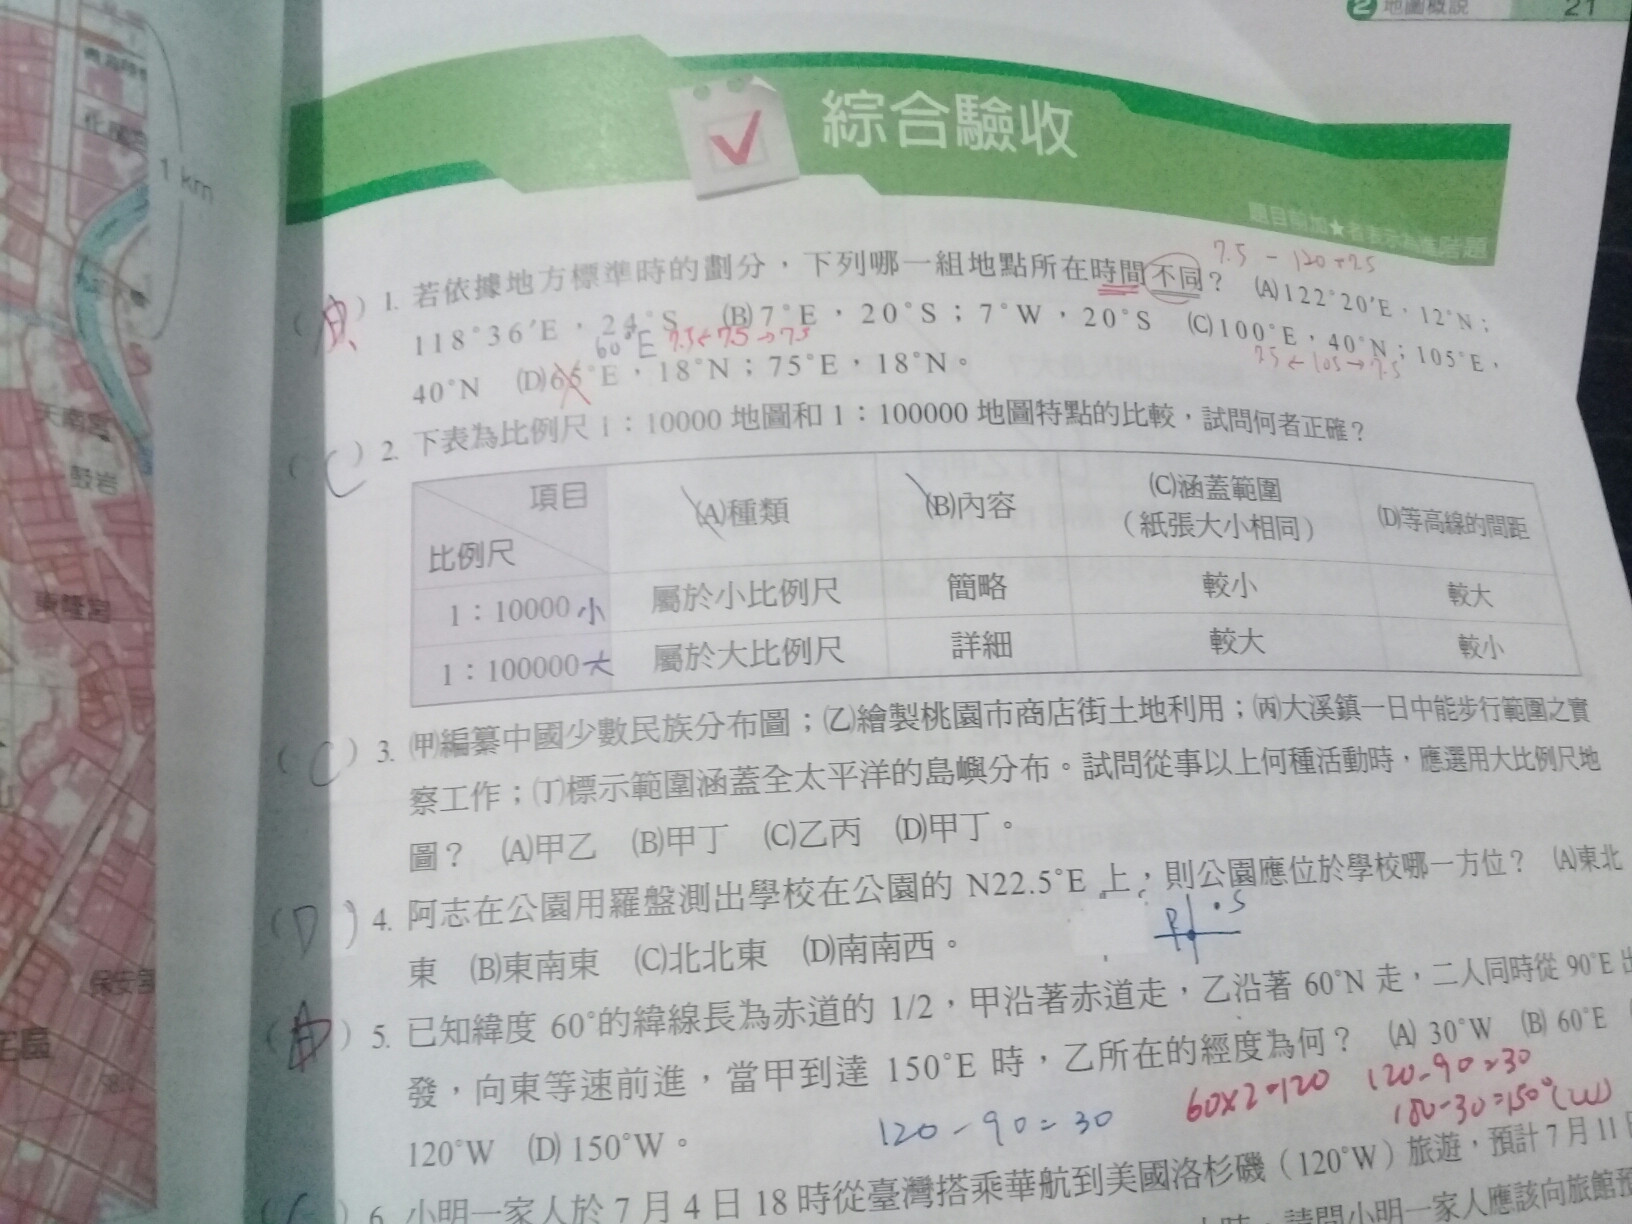 2 地圖概說 21
綜合驗收
1 km
7.5 - 120 + 7.5
1. 若依據地方標準時的劃分，下列哪一組地點所在時間不同？ (A)122°20′E，12°N；
118°36′E，24°S (B)7°E，20°S；7°W，20°S (C)100°E，40°N；105°E，
60°E 7.5 ← 75 → 7.5
7.5 ← 105 → 7.5
40°N (D)65°E，18°N；75°E，18°N。
(C) 2. 下表為比例尺 1：10000 地圖和 1：100000 地圖特點的比較，試問何者正確？
項目 (A)種類 (B)內容 (C)涵蓋範圍（紙張大小相同） (D)等高線的間距
比例尺
1：10000 小 屬於小比例尺 簡略 較小 較大
1：100000 大 屬於大比例尺 詳細 較大 較小
(C) 3. ㈙編纂中國少數民族分布圖；㈚繪製桃園市商店街土地利用；㈛大溪鎮一日中能步行範圍之實
察工作；㈜標示範圍涵蓋全太平洋的島嶼分布。試問從事以上何種活動時，應選用大比例尺地
圖？ (A)甲乙 (B)甲丁 (C)乙丙 (D)甲丁。
(D) 4. 阿志在公園用羅盤測出學校在公園的 N22.5°E 上，則公園應位於學校哪一方位？ (A)東北
P S
東 (B)東南東 (C)北北東 (D)南南西。
5. 已知緯度 60°的緯線長為赤道的 1/2，甲沿著赤道走，乙沿著 60°N 走，二人同時從 90°E 出
發，向東等速前進，當甲到達 150°E 時，乙所在的經度為何？ (A) 30°W (B) 60°E
60×2=120 120-90=30
180-30=150°(W)
120°W (D) 150°W。
120-90=30
6. 小明一家人於 7 月 4 日 18 時從臺灣搭乘華航到美國洛杉磯（120°W）旅遊，預計 7 月 11 日
請問小明一家人應該向旅館預
天南宮
鼓岩
東隆宮
保安宮